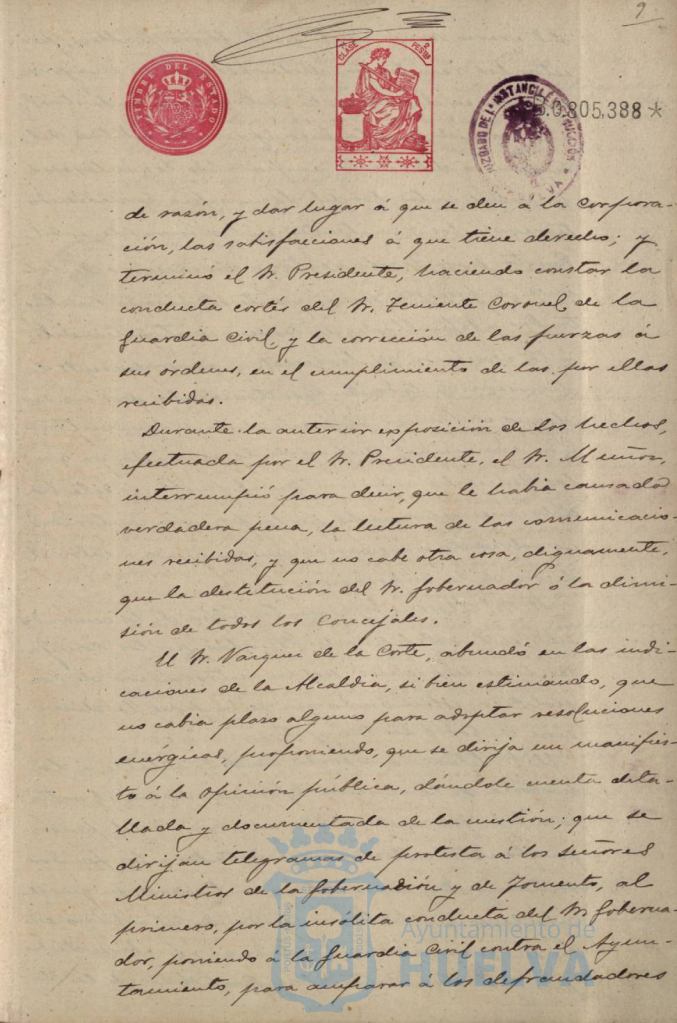 9
TIMBRE DEL ESTADO
CLASE
2
PESETAS
JUZGADO DE 1ª INSTANCIA E INSTRUCCIÓN
HUELVA
B.0.805,388 *
de razón, y dar lugar á que se den á la Corpora-
ción, las satisfacciones á que tiene derecho; y
terminó el Sr. Presidente, haciendo constar la
conducta cortés del Sr. Teniente Coronel de la
Guardia Civil, y la corrección de las fuerzas á
sus órdenes, en el cumplimiento de las por ellas
recibidas.
Durante la anterior exposición de los hechos,
efectuada por el Sr. Presidente, el Sr. Muñoz,
interrumpió para decir, que le habia causado
verdadera pena, la lectura de las comunicacio-
nes recibidas, y que no cabe otra cosa, dignamente,
que la destitución del Sr. Gobernador ó la dimi-
sión de todos los Concejales.
El Sr. Vazquez de la Corte, abundó en las indi-
caciones de la Alcaldia, si bien estimando, que
no cabia plazo alguno para adoptar resoluciones
enérgicas, proponiendo, que se dirija un manifies-
to á la opinión pública, dándole cuenta deta-
llada y documentada de la cuestión; que se
dirijan telegramas de protesta á los señores
Ministros de la Gobernación y de Fomento, al
primero, por la insólita conducta del Sr. Goberna-
dor, poniendo á la Guardia Civil contra el Ayun-
tamiento, para amparar á los defraudadores
Ayuntamiento de
HUELVA